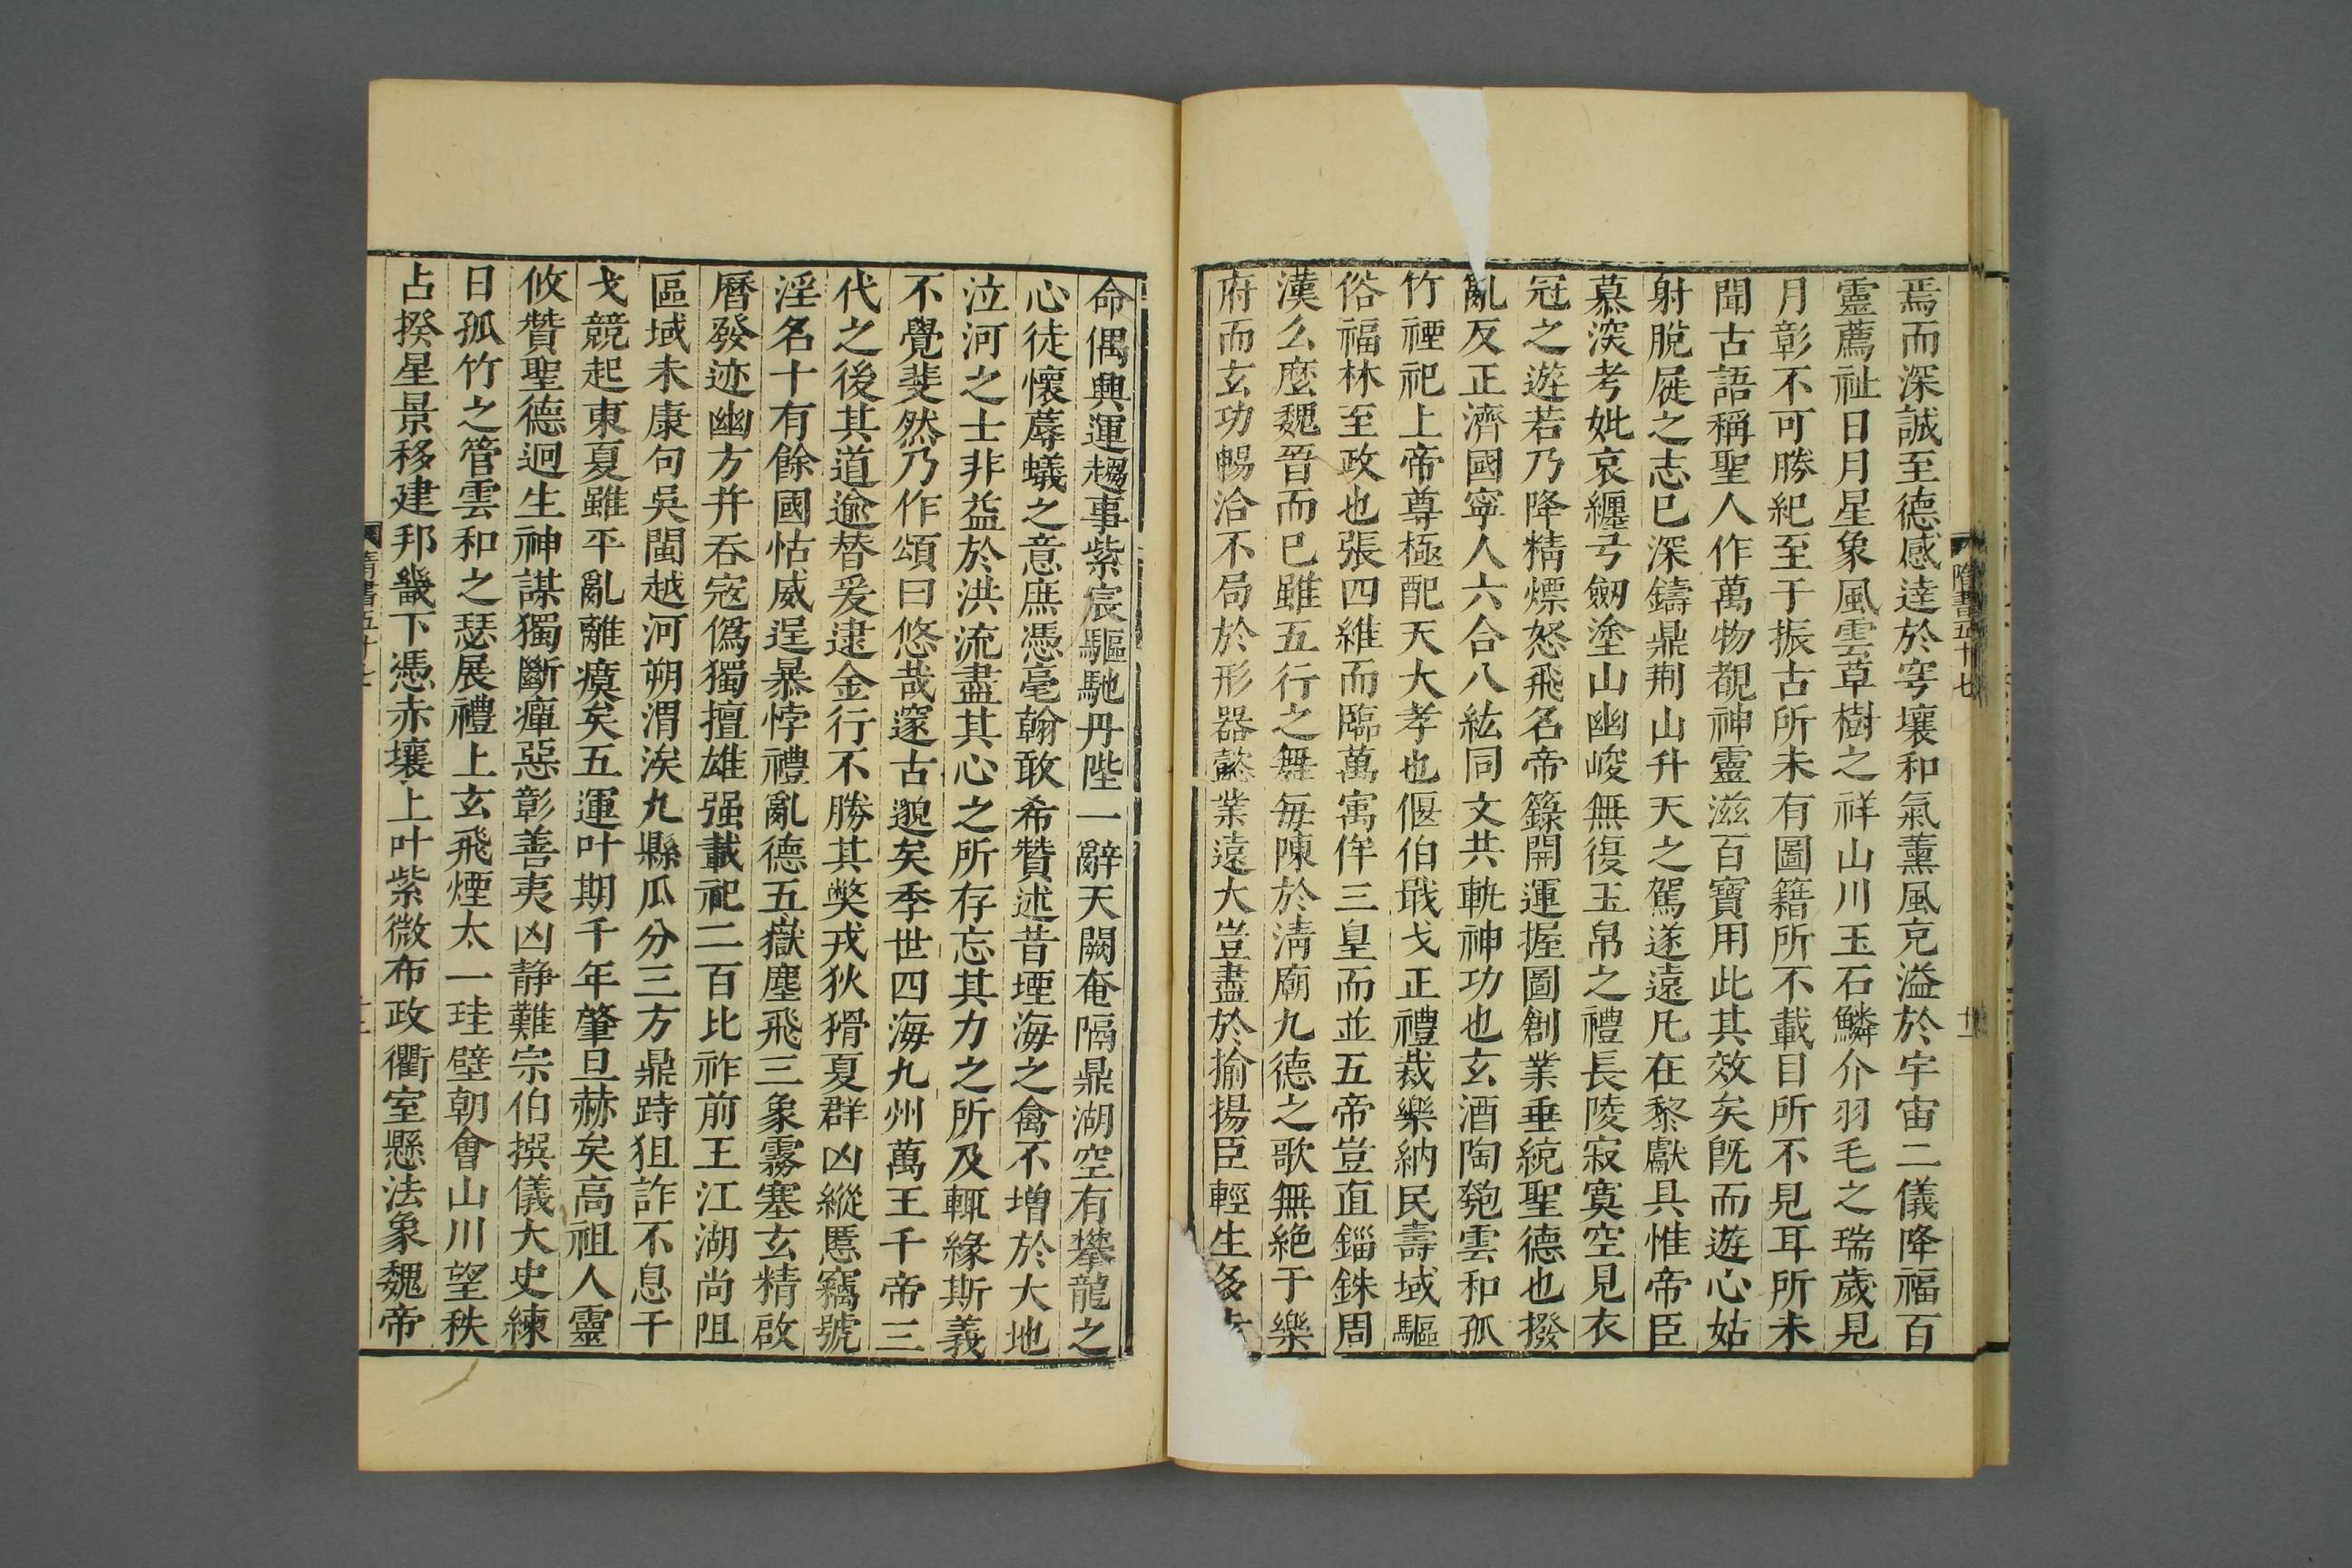 焉而深誠至德感達於穹壤和氣薰風充溢於宇宙二儀降福百
靈薦祉日月星象風雲草樹之祥山川玉石鱗介羽毛之瑞歲見
月彰不可勝紀至于振古所未有圖籍所不載目所不見耳所未
聞古語稱聖人作萬物覩神靈滋百寶用此其效矣旣而遊心姑
射脫屣之志已深鑄鼎荆山升天之駕遂遠凡在黎獻具惟帝臣
慕深考妣哀纏弓劒塗山幽峻無復玉帛之禮長陵寂寞空見衣
冠之遊若乃降精熛怒飛名帝籙開運握圖創業垂統聖德也撥
亂反正濟國寧人六合八紘同文共軌神功也玄酒陶匏雲和孤
竹禋祀上帝尊極配天大孝也偃伯戢戈正禮裁樂納民壽域驅
俗福林至政也張四維而臨萬寓侔三皇而並五帝豈直錙銖周
漢么麼魏晉而已雖五行之舞每陳於淸廟九德之歌無絶于樂
府而玄功暢洽不局於形器懿業遠大豈盡於揄揚臣輕生多
隋書五十七
十一
命偶興運趨事紫宸驅馳丹陛一辭天闕奄隔鼎湖空有攀龍之
心徒懷蓐蟻之意庶憑毫翰敢希贊述昔堙海之禽不增於大地
泣河之士非益於洪流盡其心之所存忘其力之所及輒緣斯義
不覺斐然乃作頌曰悠哉邃古邈矣季世四海九州萬王千帝三
代之後其道逾替爰逮金行不勝其獘戎狄猾夏群凶縱慝竊號
淫名十有餘國怙威逞暴悖禮亂德五嶽塵飛三象霧塞玄精啟
曆發迹幽方并吞寇僞獨擅雄强載祀二百比祚前王江湖尚阻
區域未康句吳閩越河朔渭涘九縣瓜分三方鼎跱狙詐不息干
戈競起東夏雖平亂離瘼矣五運叶期千年肇旦赫矣高祖人靈
攸贊聖德迥生神謀獨斷癉惡彰善夷凶静難宗伯撰儀大史練
日孤竹之管雲和之瑟展禮上玄飛煙太一珪璧朝會山川望秩
占揆星景移建邦畿下憑赤壤上叶紫微布政衢室懸法象魏帝
隋書五十七